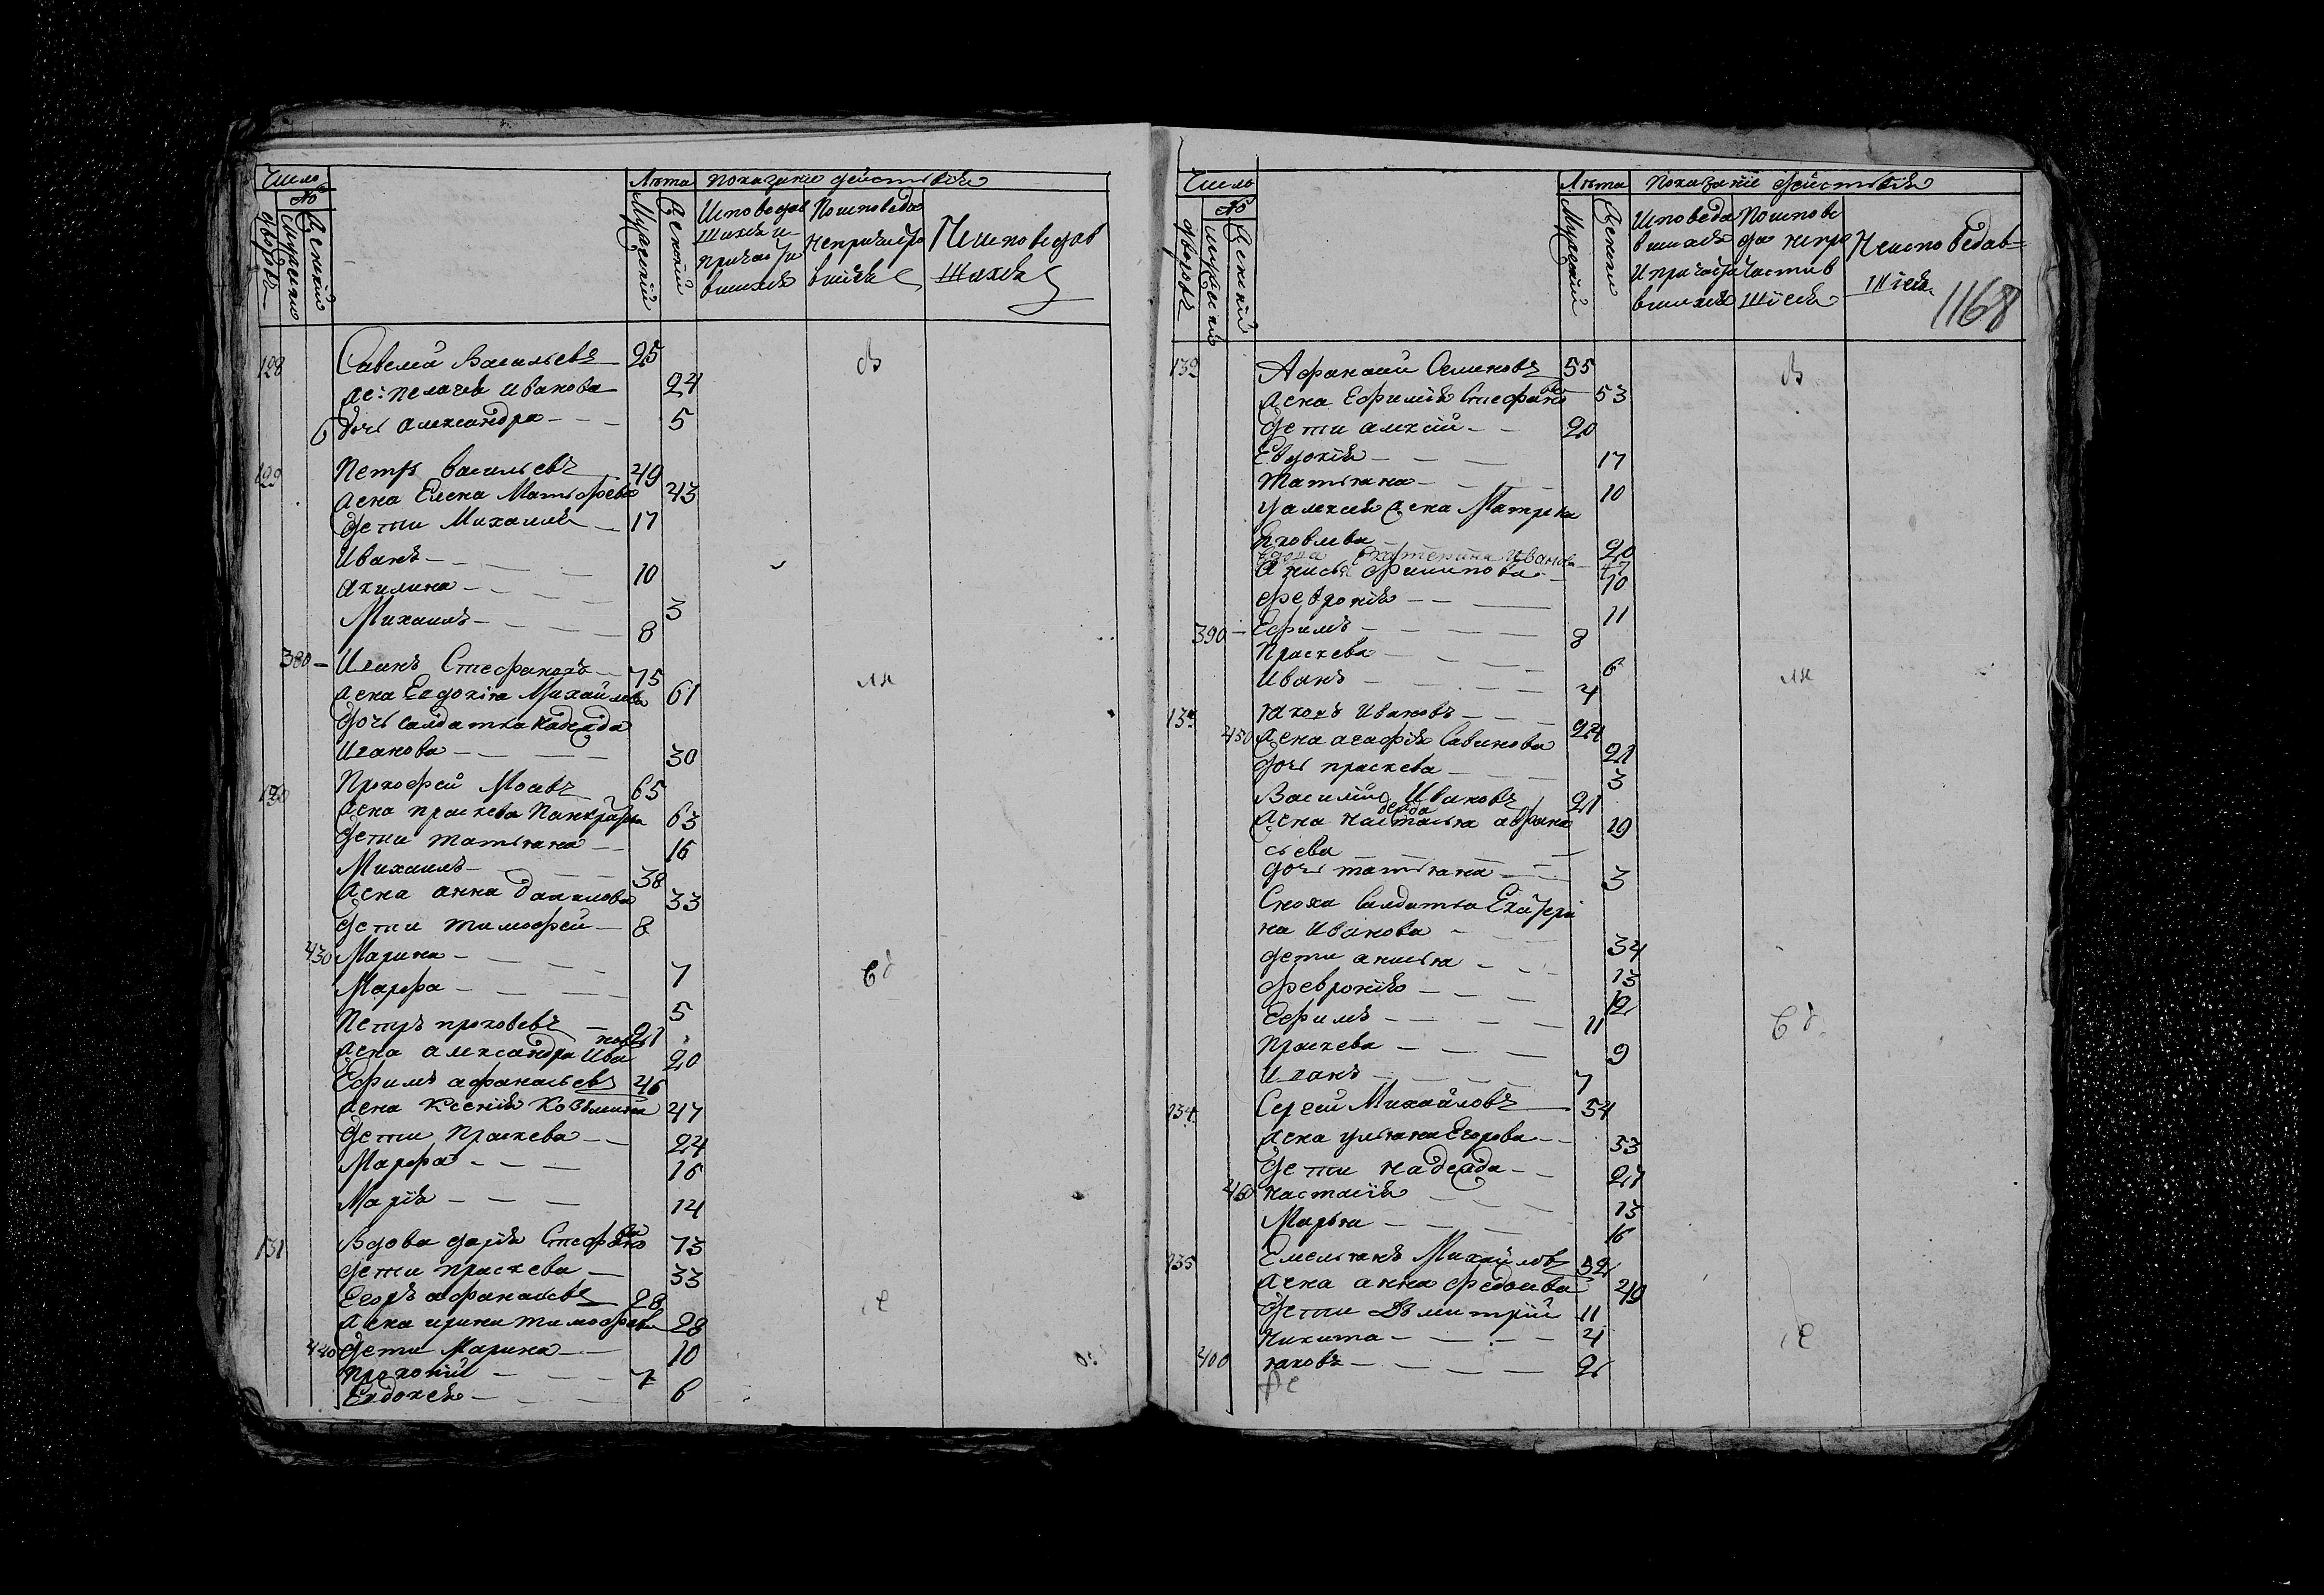 Число
№
дворовъ
Мужескїй
Женскїй
Лѣта
Мужескїй
Женскїй
Показанїе действїя
Исповедав
шихся и
причасти
вшихся
Поисповеда
непричасти
вшихся
Неисповедав
шихся
128 Савелий Васильевъ 25
же: пелагея иванова 24
6 дочь александра 5
129 Петръ васильевъ 49
жена Елена Матьфева 43
дети Михаилъ 17
Иванъ 10
акилина 3
Михаилъ 8
380 Иванъ Стефановъ 75
жена Евдокия Михайлова 61
дочь салдатка надежда
Иванова 30
130 Прокофей Моевъ 65
жена праскева Панкратова 63
дети татьяна 16
Михаилъ 38
жена анна данилова 33
дети тимофей 8
430 Марина 7
Марфа 5
Петръ прокофевъ 21
жена александра Ива
нова 20
Ефимъ афанасьевъ 46
жена Ксенїя Козьмина 47
дети Праскева 24
Марфа 16
Марїя 14
131 Вдова дарїя Стефанова 73
дети праскева 33
Егоръ афанасьевъ 28
жена ирина тимофеева 28
440 дети Марина 10
Прокопий 7
Евдокея 6
В
ли
бд
Число
№
дворовъ
мужескїй
Женскїй
Лѣта
Мужеский
Женский
Показанїе действїя
Исповеда
вшихся
и причасти
вшихся
Поиспове
да непри
частив
шїеся
Неисповедав=
шїеся
1168
132 Афанасий Семеновъ 55
жена Ефимїя Стефанова 53
дети алексий 20
Евдокїя 17
Татьяна 10
у алексея жена Матрена
Яковлева 20
вдова Екатерина Иванова 47
Анисья филипова 10
Феврония 11
390 Ефимъ 8
Праскева 6
Иванъ 4
133 яковъ Ивановъ 24
450 жена агафїя Савинова 21
дочь праскева 3
Василий Ивановъ 21
жена настасья афана 19
дежда
сьева
дочь татьяна 3
Сноха Салдатка Екатери
на Иванова 34
дети анисья 13
феврония 12
Ефимъ 11
Праскева 9
Иванъ 7
134 Сергей Михайловъ 54
жена ульяна Егорова 53
дети надежда 21
460 настасїя 13
Марья 16
135 Емельянъ Михайловъ 52
жена анна федоива 49
дети Дмитрїй 11
Никита 4
400 яковъ 2
В
ли
бд